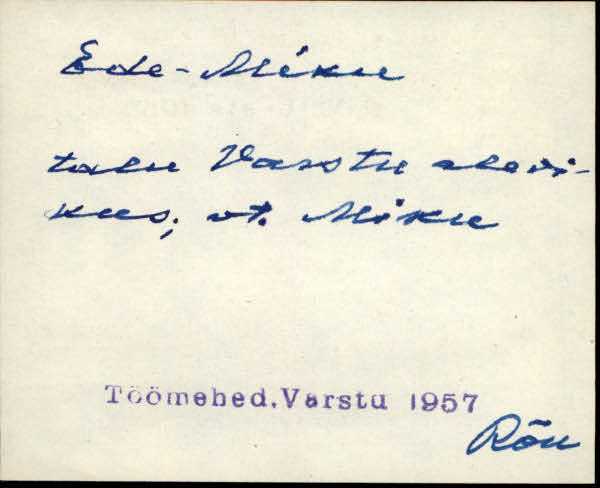 Ede-Miku
talu Varstu alevi-
kus; vt. Miku
Töömehed.Varstu 1957
Rõu